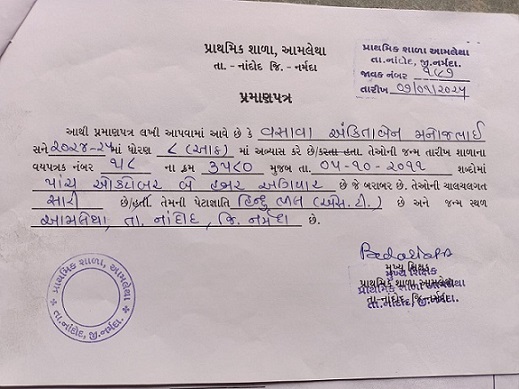 પ્રાથમિક શાળા, આમલેથા
તા. - નાંદોદ જિ. - નર્મદા
પ્રાથમિક શાળા આમલેથા
તા.નાંદોદ, જી.નર્મદા.
જાવક નંબર ૧૬૧
તારીખ ૦૧/૦૧/૨૦૨૫
પ્રમાણપત્ર
આથી પ્રમાણપત્ર લખી આપવામાં આવે છે કે વસાવા અંકિતાબેન મનોજભાઈ
સને ૨૦૨૪-૨૫ માં ધોરણ ૮ (આઠ) માં અભ્યાસ કરે છે/કરતા હતા. તેઓની જન્મ તારીખ શાળાના
વયપત્રક નંબર ૧/૮ ના ક્રમ ૩૫૮૦ મુજબ તા. ૦૫-૧૦-૨૦૧૧ શબ્દોમાં
પાંચ ઓક્ટોબર બે હજાર અગિયાર છે જે બરાબર છે. તેઓની ચાલચલગત
સારી છે/હતી. તેમની પેટાજ્ઞાતિ હિન્દુ ભીલ (એસ.ટી.) છે અને જન્મ સ્થળ
આમલેથા, તા. નાંદોદ, જિ. નર્મદા છે.
મુખ્ય શિક્ષક
મુખ્ય શિક્ષક
પ્રાથમિક શાળા આમલેથા
પ્રાથમિક શાળા આમલેથા
તા-નાંદોદ જિ.નર્મદા.
તા.નાંદોદ, જી.નર્મદા.
પ્રાથમિક શાળા, આમલેથા
તા.નાંદોદ, જી.નર્મદા.